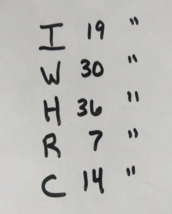 I 19 "
W 30 "
H 36 "
R 7 "
C 14 "